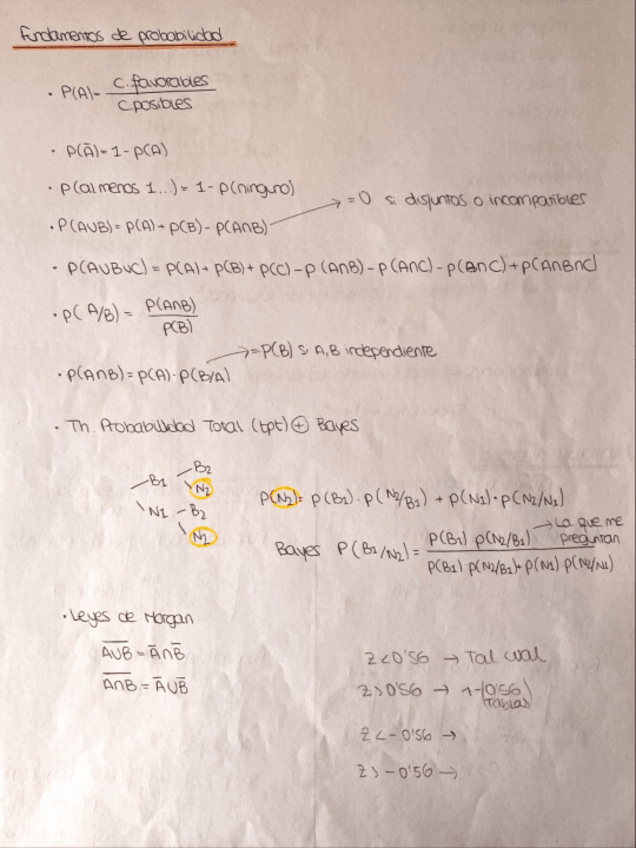 Fundamentos de probabilidad
· P(A)= C.favorables / C.posibles
· P(Ā)=1-P(A)
· P(al menos 1...)= 1-P(ninguno)
· P(A∪B)= P(A)+P(B)-P(A∩B) → =0 si disjuntos o incompatibles
· P(A∪B∪C)= P(A)+P(B)+P(C)-P(A∩B)-P(A∩C)-P(B∩C)+P(A∩B∩C)
· P(A/B)= P(A∩B) / P(B)
→ =P(B) si A,B independiente
· P(A∩B)=P(A)·P(B/A)
· Th. Probabilidad Total (tpt) ⊕ Bayes
B1 B2
N2
N1 B2
N2
P(N2)= P(B1)·P(N2/B1) + P(N1)·P(N2/N1)
Bayes P(B1/N2)= P(B1) P(N2/B1) / P(B1) P(N2/B1)+P(N1) P(N2/N1)
→ La que me preguntan
· Leyes de Morgan
A∪B̅ = Ā∩B̅
A∩B̅ = Ā∪B̅
Z<0'56 → Tal cual
Z>0'56 → 1-(0'56)
Tablas
Z<-0'56 →
Z>-0'56 →